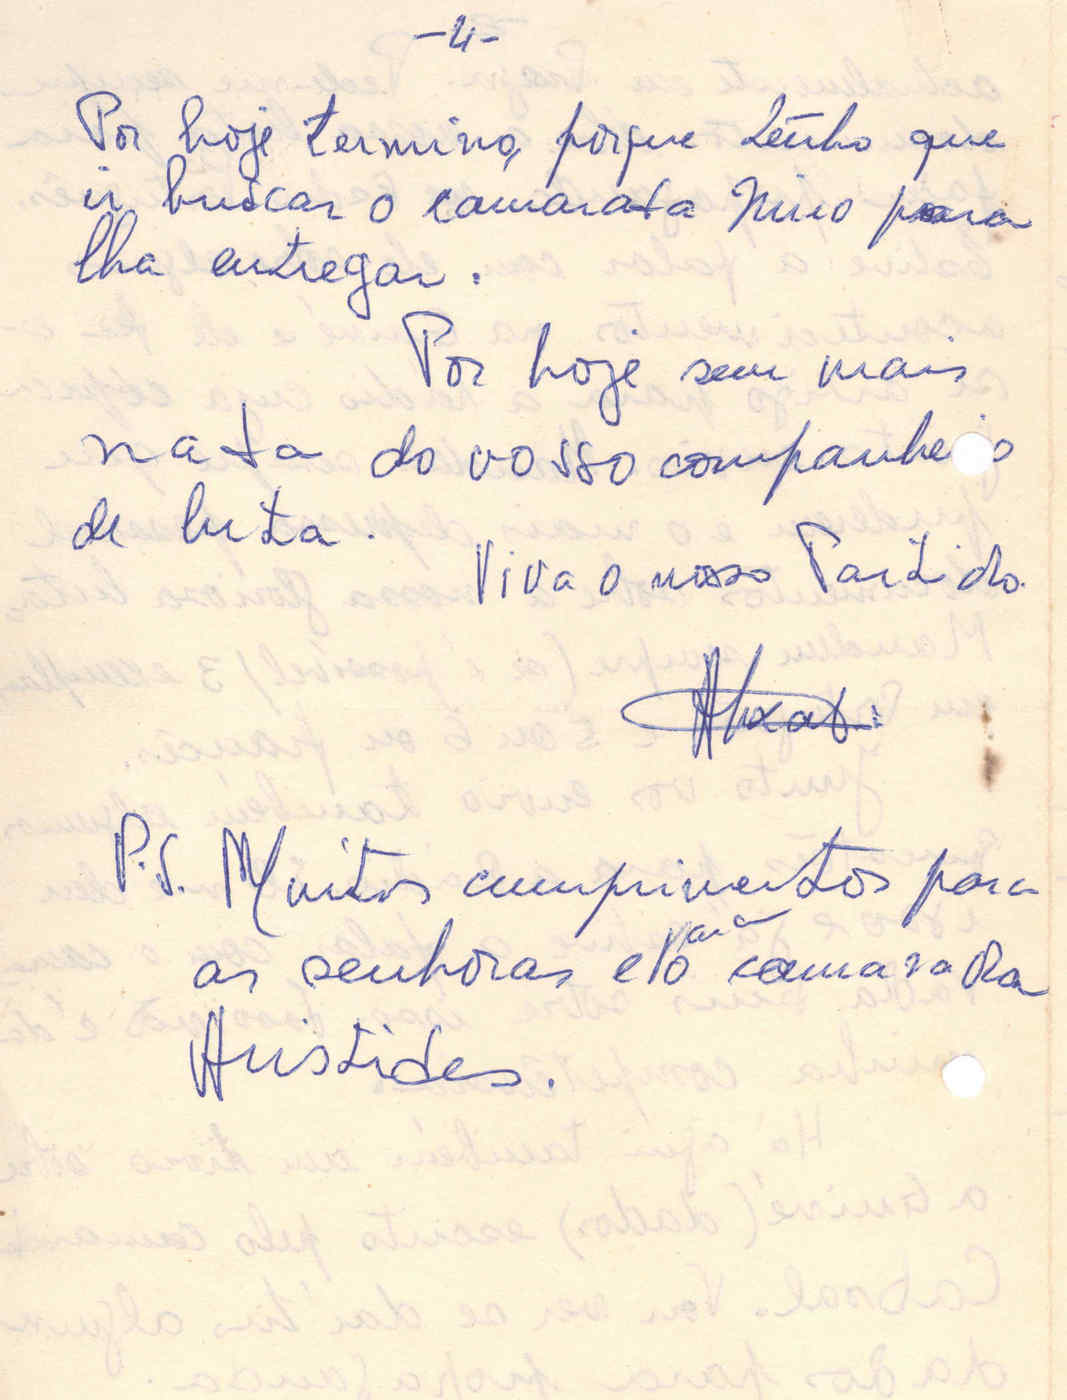 -4-
Por hoje termino, porque tenho que
ir buscar o camarata Nino para
lha entregar.
Por hoje sem mais
nata do vosso companheio
de luta.
Viva o nosso Partido.
P.S. Muitos cumprimentos para
as senhoras e para o camarada
Aristides.